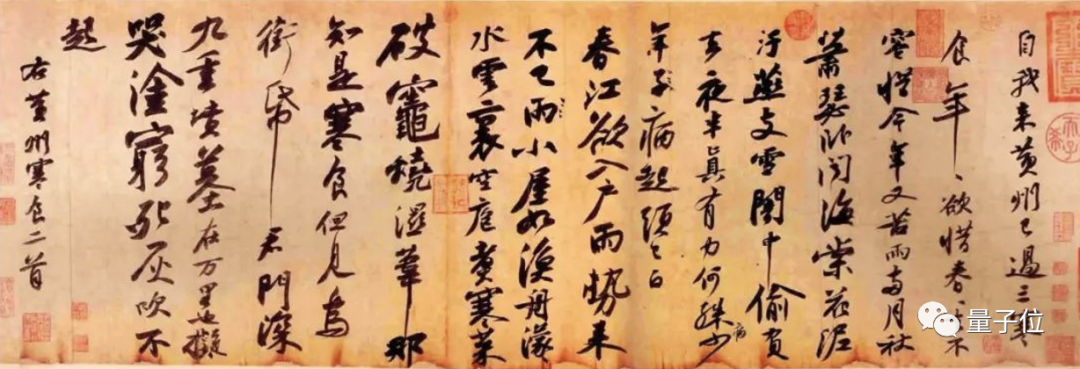 自我来黄州已過三寒
食年〻欲惜春〻去不
容惜今年又苦雨兩月秋
蕭瑟卧聞海棠花泥
汙燕支雪闇中偷負
去夜半真有力何殊少
病
年子病起頭已白
春江欲入户雨勢来
不已雨小屋如漁舟濛〻
水雲裏空庖煮寒菜
破竈燒濕葦那
知是寒食但見烏
銜帋君門深
九重墳墓在万里也擬
哭塗窮死灰吹不
起
右黄州寒食二首
量子位